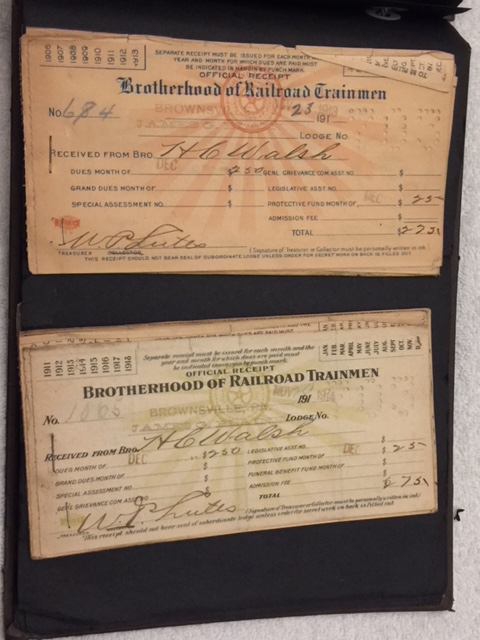 1906 1907 1908 1909 1910 1911 1912 1913
SEPARATE RECEIPT MUST BE ISSUED FOR EACH MONTH
YEAR AND MONTH FOR WHICH DUES ARE PAID MUST
BE INDICATED IN MARGIN BY PUNCH MARK.
OFFICIAL RECEIPT
Brotherhood of Railroad Trainmen
No 684
BROWNSVILLE
23
191
LODGE No.
RECEIVED FROM BRO. H C Walsh
DUES MONTH OF DEC $ 2 50 GENL GRIEVANCE COM. ASST NO. $
GRAND DUES MONTH OF $ LEGISLATIVE ASST. NO. $
SPECIAL ASSESSMENT NO. $ PROTECTIVE FUND MONTH OF DEC $ 25
ADMISSION FEE $
TOTAL $ 2 75
TREASURER COLLECTOR
(Signature of Treasurer or Collector must be personally written in ink
THIS RECEIPT SHOULD NOT BEAR SEAL OF SUBORDINATE LODGE UNLESS ORDER FOR SECRET WORK ON BACK IS FILLED OUT.
1911 1912 1913 1914 1915 1916 1917 1918
JAN FEB MAR. APRIL MAY JUNE JULY AUG. SEPT OCT. NOV
Separate receipt must be issued for each month and the
year and month for which dues are paid must
be indicated in margin by punch mark
OFFICIAL RECEIPT
BROTHERHOOD OF RAILROAD TRAINMEN
No.
BROWNSVILLE, PA.
191
LODGE No.
RECEIVED FROM BRO. H C Walsh
DUES MONTH OF DEC $ 2 50 LEGISLATIVE ASST. NO. $
GRAND DUES MONTH OF $ PROTECTIVE FUND MONTH OF DEC $ 25
SPECIAL ASSESSMENT NO. $ FUNERAL BENEFIT FUND MONTH OF $
GENL GRIEVANCE COM. ASST NO. $ ADMISSION FEE $
TOTAL $ 2 75
(Signature of Treasurer or Collector must be personally written in ink)
This receipt should not bear seal of subordinate lodge unless order for secret work on back is filled out.